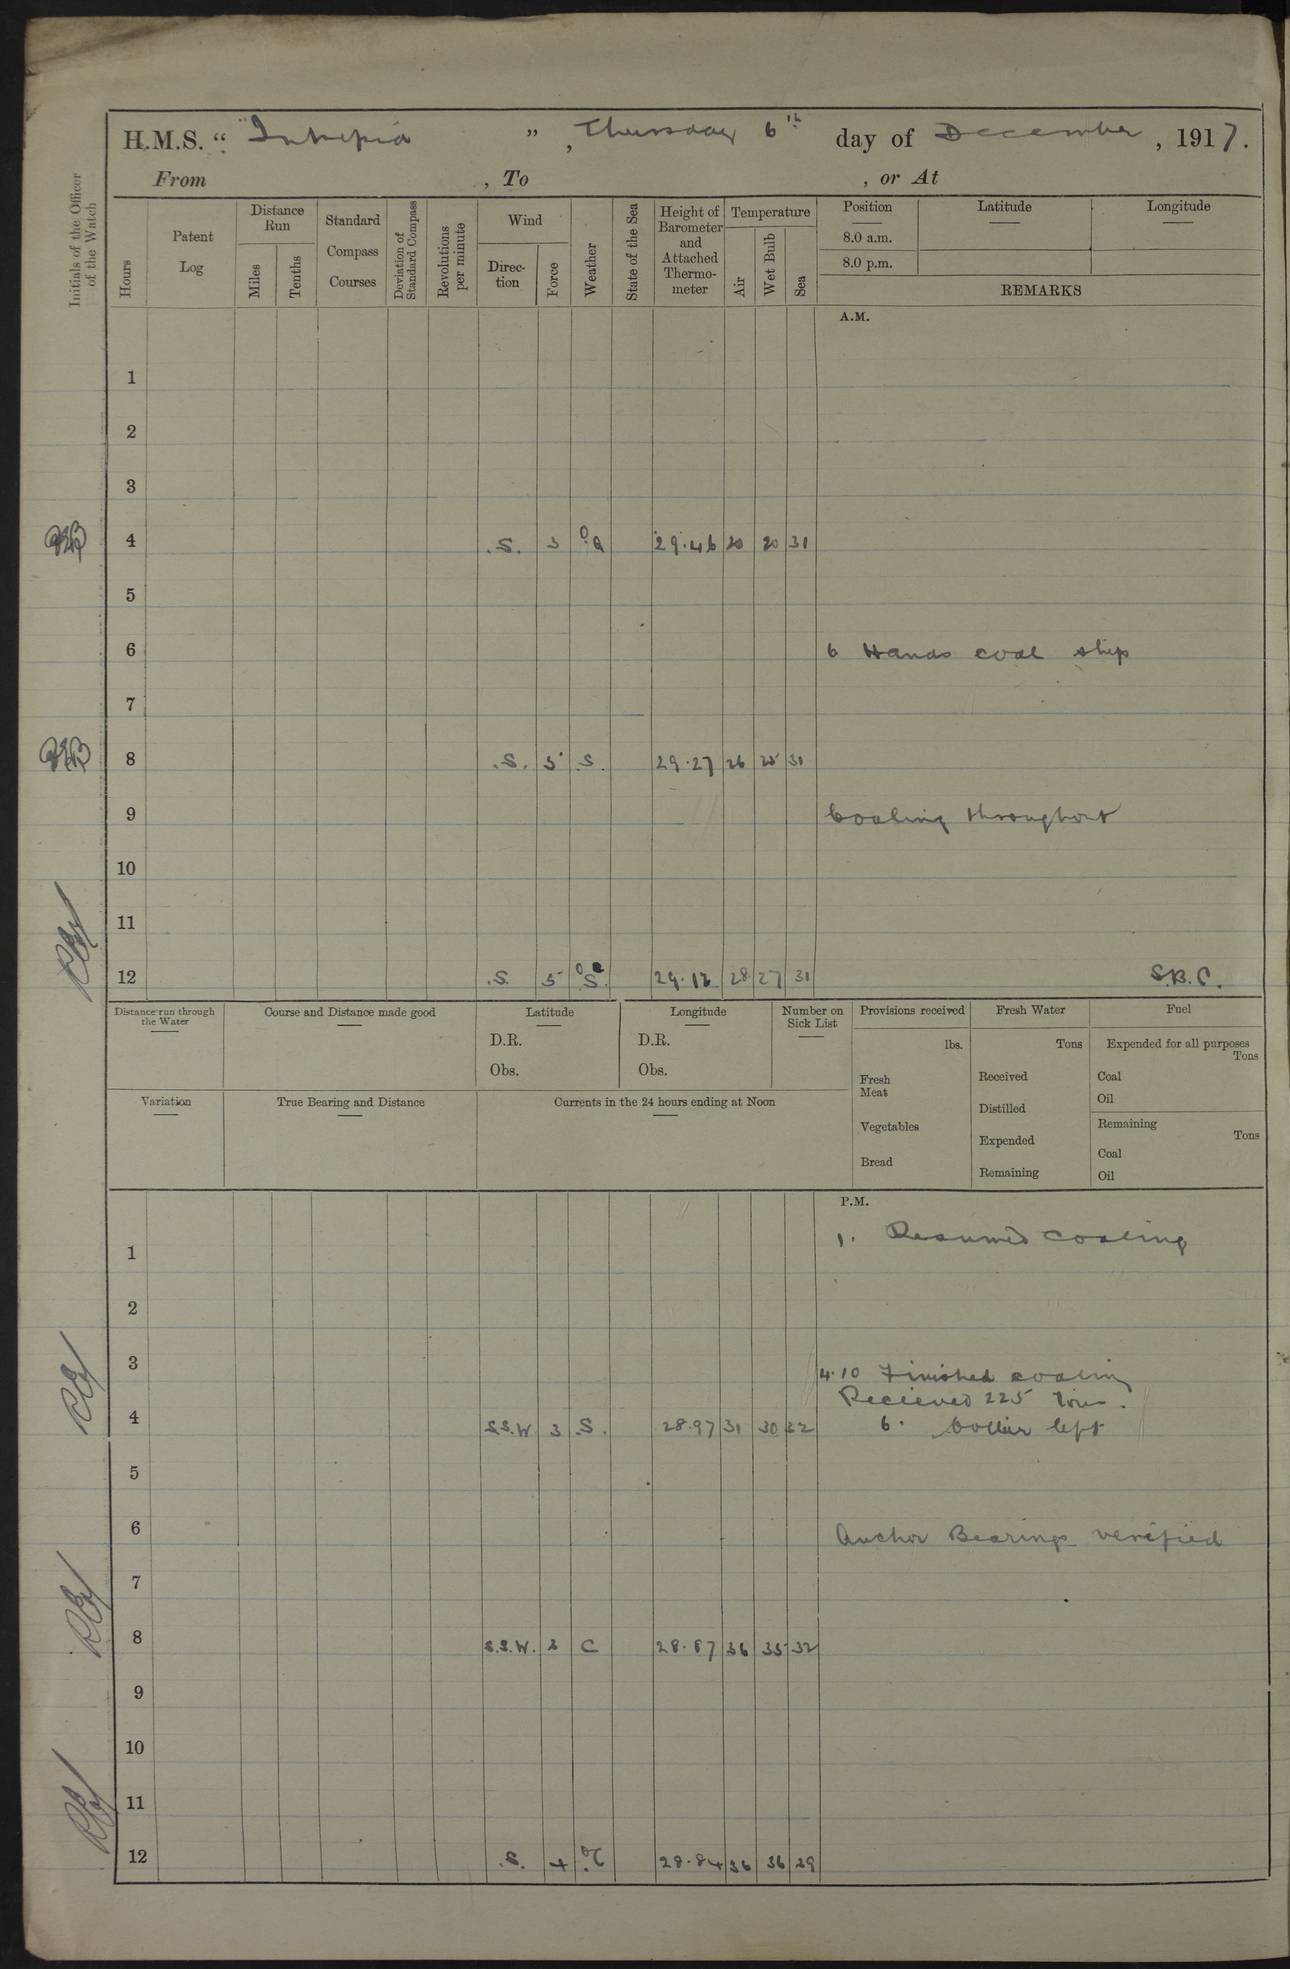 H.M.S. " "Intrepid ", Thursday 6th day of December, 1917.
From , To , or At
Initials of the Officer of the Watch
Hours
Patent Log
Distance Run
Miles
Tenths
Standard Compass Courses
Deviation of Standard Compass
Revolutions per minute
Wind
Direction
Force
Weather
State of the Sea
Height of Barometer and Attached Thermometer
Temperature
Air
Wet Bulb
Sea
Position
8.0 a.m.
8.0 p.m.
Latitude
Longitude
REMARKS
A.M.
1
2
3
4 S. 3 29.46 20 20 31
5
6 6 Hands coal ship
7
8 S. 5 S. 29.27 26 25 31
9 Coaling throughout
10
11
12 S. 5 29.12 28 27 31 S.B.C.
Distance run through the Water
Course and Distance made good
Latitude
D.R.
Obs.
Longitude
D.R.
Obs.
Number on Sick List
Provisions received
lbs.
Fresh Meat
Vegetables
Bread
Fresh Water
Tons
Received
Distilled
Expended
Remaining
Fuel
Expended for all purposes
Tons
Coal
Oil
Remaining
Tons
Coal
Oil
Variation
True Bearing and Distance
Currents in the 24 hours ending at Noon
P.M.
1 1. Resumed coaling
2
3 4.10 Finished coaling
Recieved 225 tons.
4 S.S.W 3 S. 28.97 31 30 32 6. Collier left
5
6 Anchor Bearings verified
7
8 S.S.W. 3 C 28.87 36 35 32
9
10
11
12 S. 4 28.84 36 36 29